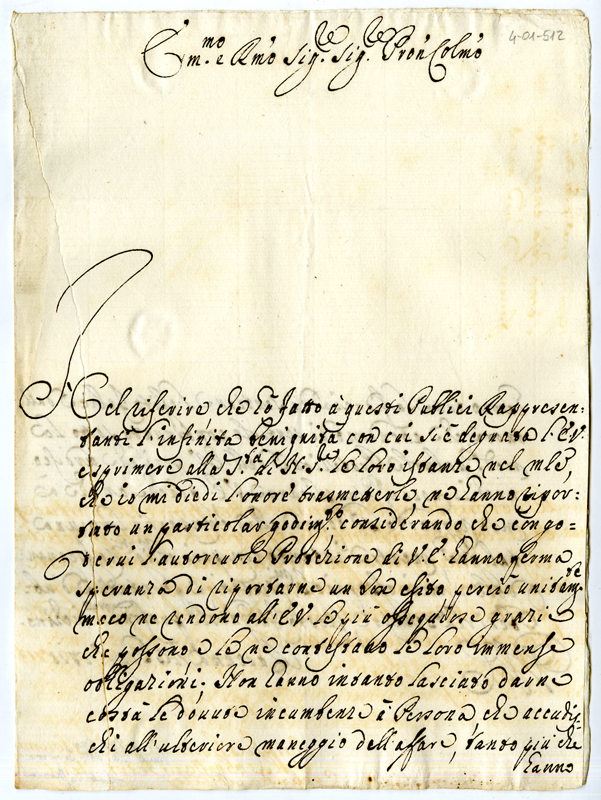 4-01-512
Em.mo e Rmo Sig.re Sig.re Pron Colmo
Nel riferire che hò fatto à questi Publici Rappresen=
tanti l'infinita benignità con cui si è degnata l'E.V.
esprimere alla S.tà di N. S.re le loro istanze nel mle,
che io mi diedi l'onore trasmetterle ne hanno ripor=
tato un particolar godim.to considerando che con go=
dervi l'autorevole Protezione di V.E. hanno ferma
speranza di riportarne un bon esito perciò unitam.te
meco ne rendono all'E.V. le più ossequiose grazie
che possono e le ne contestano le loro immense
obligazioni. Non hanno intanto lasciato darne
costà le dovute incumbenze à Persona, che accudis=
chi all'ulteriore maneggio dell'affare, tanto più che
hanno